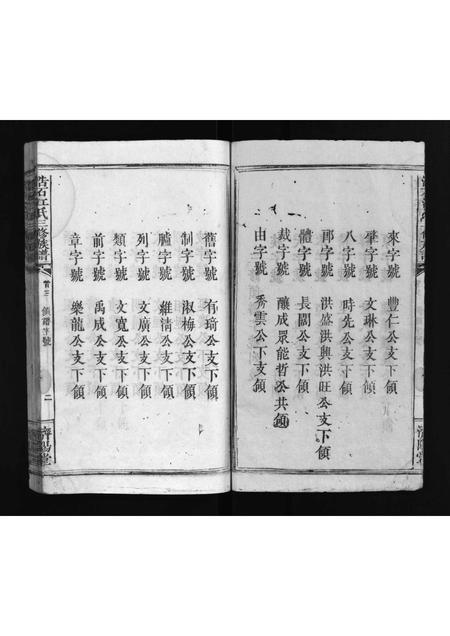 來字號 豐仁公支下領
壁字號 文琳公支下領
八字號 時先公支下領
郡字號 洪盛洪興洪旺公支下領
體字號 長闊公支下領
裁字號 釀成眾能哲公共領
由字號 秀雲公下支領
舊字號 有琦公支下領
制字號 淑梅公支下領
體字號 維清公支下領
列字號 文廣公支下領
類字號 文寬公支下領
前字號 禹成公支下領
章字號 樂龍公支下領
浩石江氏三修族譜
首三 領譜字號
二
濟陽堂
濟陽堂